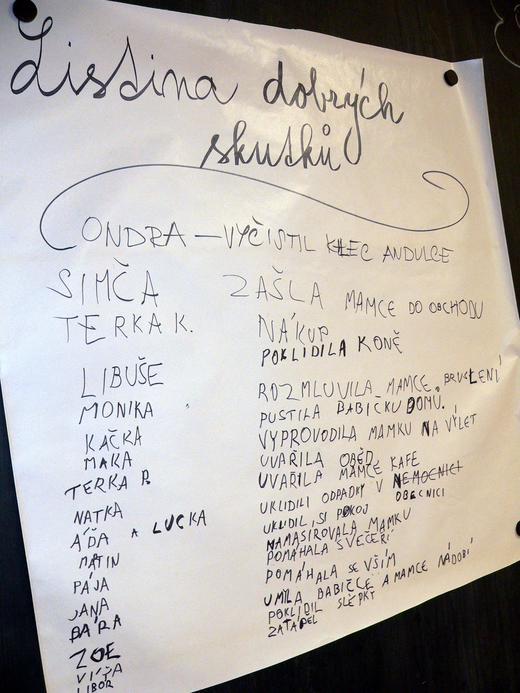 Listina dobrých
skutků
ONDRA — VYČISTIL KLEC ANDULCE
SIMČA ZAŠLA MAMCE DO OBCHODU
TERKA K. NÁKUP
POKLIDILA KONĚ
LIBUŠE ROZMLUVILA MAMCE BRUSLENÍ
MONIKA PUSTILA BABIČKU DOMŮ.
KAČKA VYPROVODILA MAMKU NA VÝLET
MAKA UVAŘILA OBĚD
TERKA P. UVAŘILA MAMCE KAFE
NATKA UKLIDILI ODPADKY V NEMOCNICI
OBECNICI
AĎA A LUCKA UKLIDIL SI POKOJ
MATIN NAMASÍROVALA MAMKU
PÁJA POMÁHALA S VEČEŘÍ
JANA POMÁHALA SE VŠÍM
BÁRA UMILA BABIČCE A MAMCE NÁDOBÍ
ZOE POKLIDIL SLEPKY
VÍŤA ZATÁPĚL
LIBOR